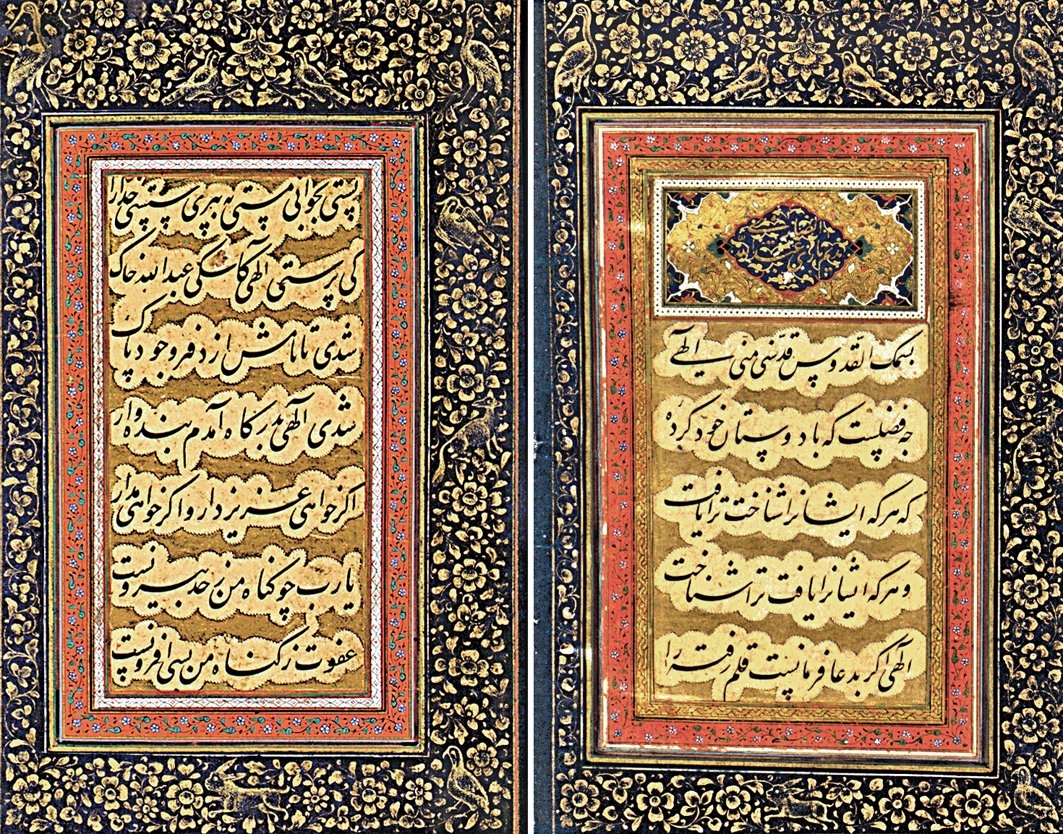 بسمک القدوس قدسنی منی الهی
چه فضلست که با دوستان خود کرده
که هر که ایشانرا شناخت ترا یافت
و هر که ایشانرا یافت ترا شناخت
الهی اگر بدعا فرمانیست قلم رفته را
پستی بجوانی مستی به پیری سستی خدا را
کی پرستی الهی کاشکی عبدالله خاک
شدی تا نامش از دفتر وجود پاک
شدی الهی بدرگاه آمدم بنده وار
اگر خواهی عزیز دار و اگر خواهی مدار
یا رب چو گناه من ز حد بیرونست
عفوت ز گناه من بسی افزونست